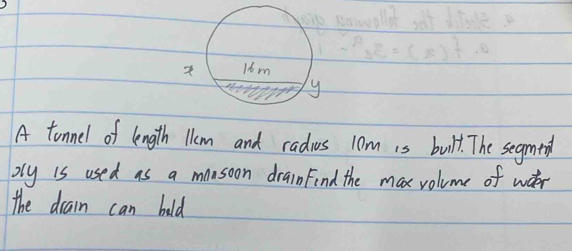 x
16m
y
A tunnel of length 11km and radius 10m is built. The segment
xy is used as a monsoon drain Find the max volume of water
the drain can hold